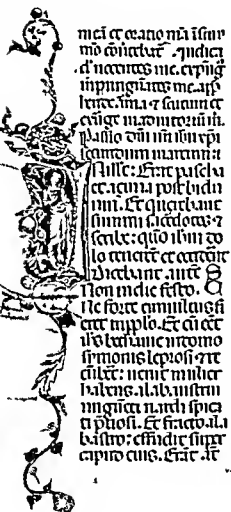 meā et oratio m̄a ī sinu
meo
nocentes me. expug̃
impugnantes me. app̄
hende arma ⁊ scutum et
exurge in adiutoriū m.
Passio dn̄i nr̄i ih̄u xp̄i
secundum marcum: i
N ille: Erat pascha
et azima post bidu
um. Et querebant
summi sac̄dotes ⁊
scribe: quo ih̄m do
lo tenerēt et occiderēt
Dicebant aut̄ S
Non in die festo. C
Ne forte tumultus fi
eret ī pp̄lo. Et cū eēt
ih̄s bethanie in domo
symonis leprosi ⁊ re
cūbēt: uenit mulier
habens alab.
ungūeti nardi spica
ti p̄tiosi. Et fracto ala
bastro: effudit super
capite eius. Erāt